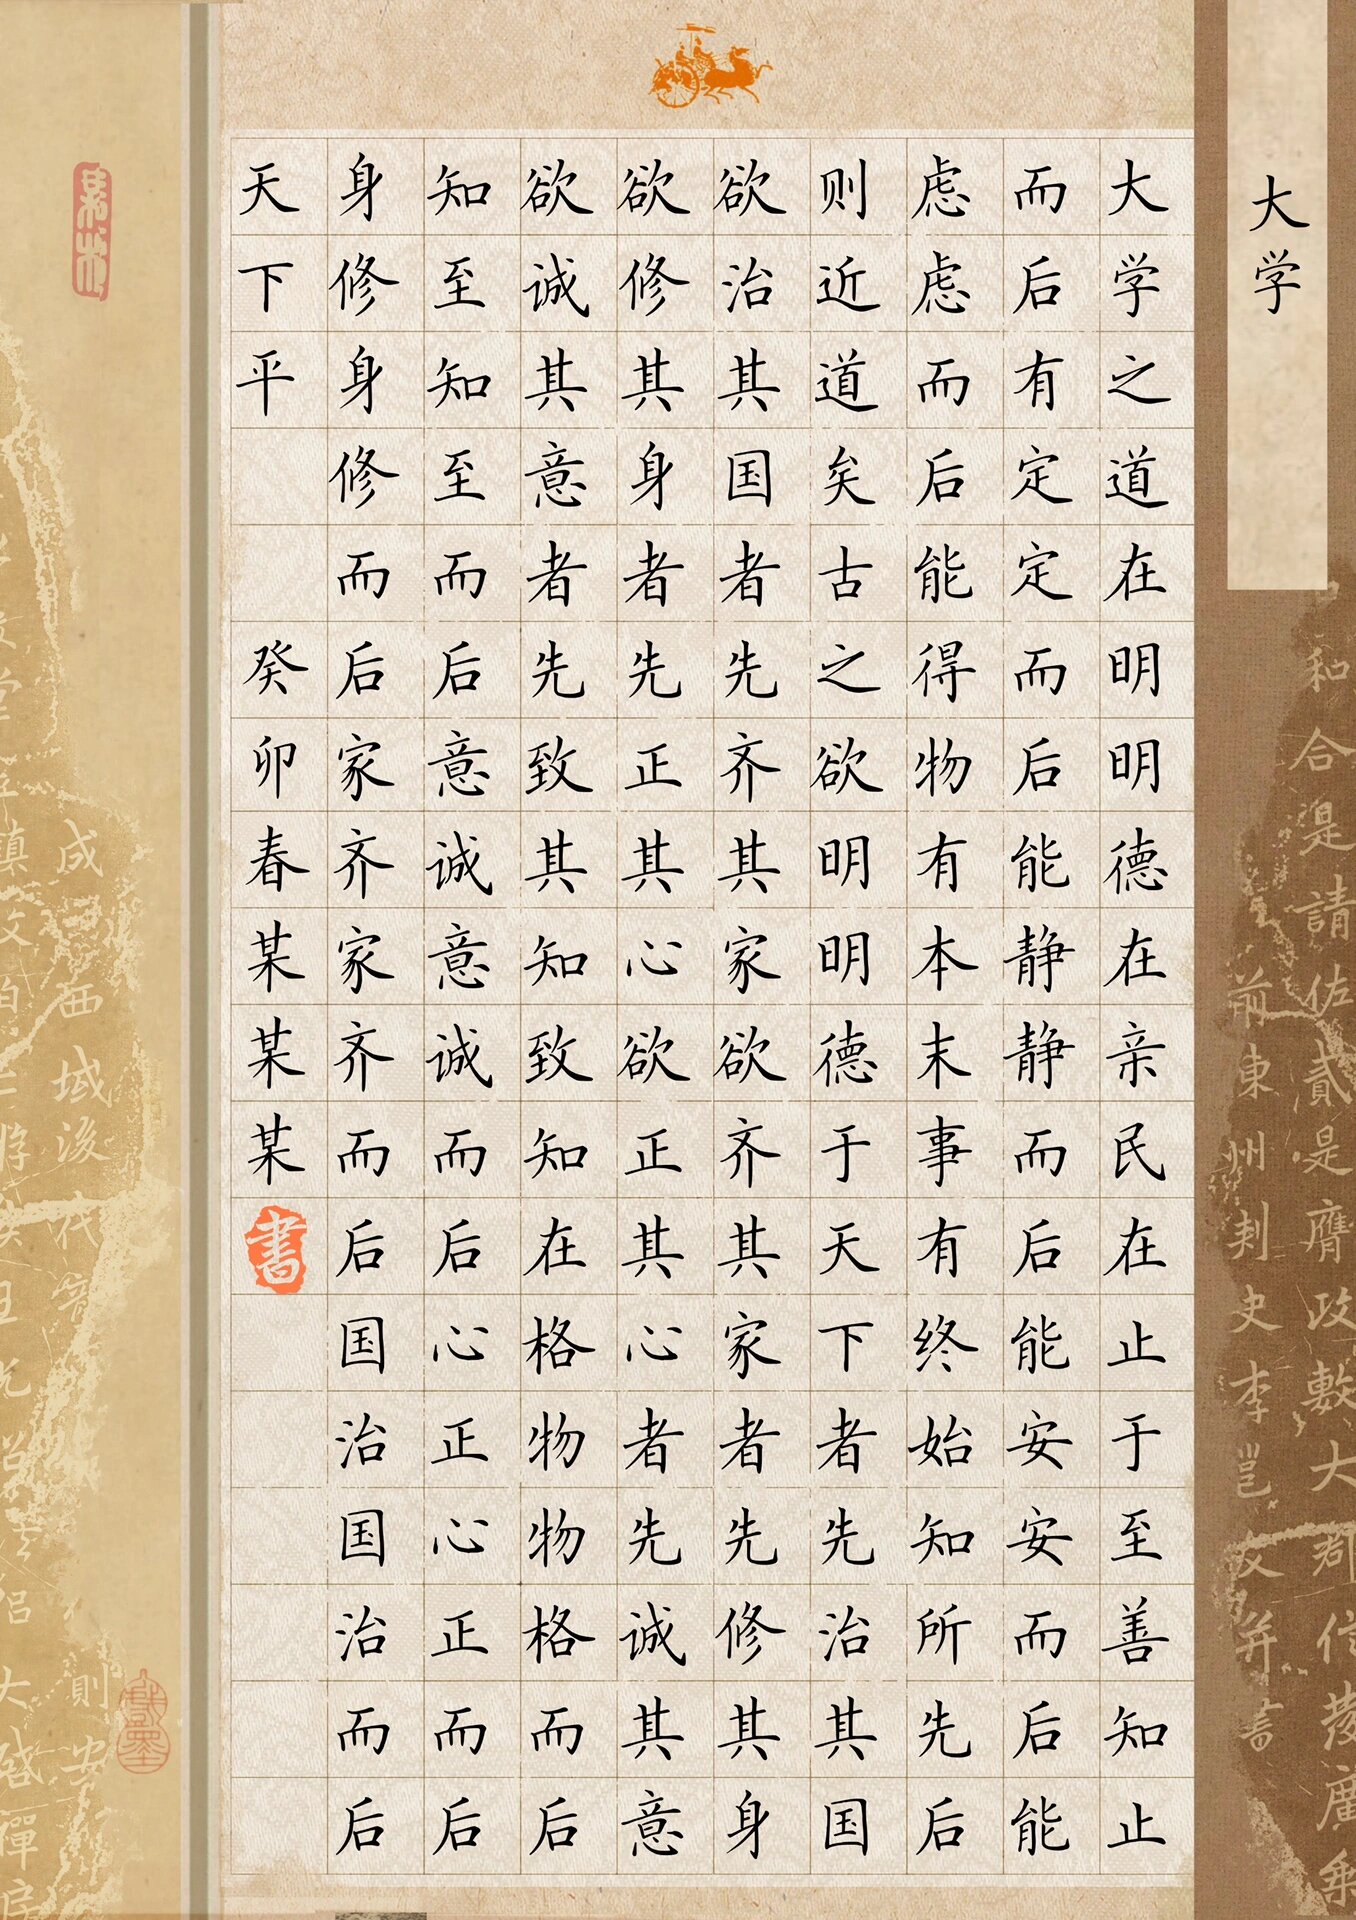 大学
大学之道在明明德在亲民在止于至善知止
而后有定定而后能静静而后能安安而后能
虑虑而后能得物有本末事有终始知所先后
则近道矣古之欲明明德于天下者先治其国
欲治其国者先齐其家欲齐其家者先修其身
欲修其身者先正其心欲正其心者先诚其意
欲诚其意者先致其知致知在格物物格而后
知至知至而后意诚意诚而后心正心正而后
身修身修而后家齐家齐而后国治国治而后
天下平
癸卯春某某某書
和合湜請佐貳是膺政數大郡信發廣乘
前東州判史李邕文并書
成西域後代
則安